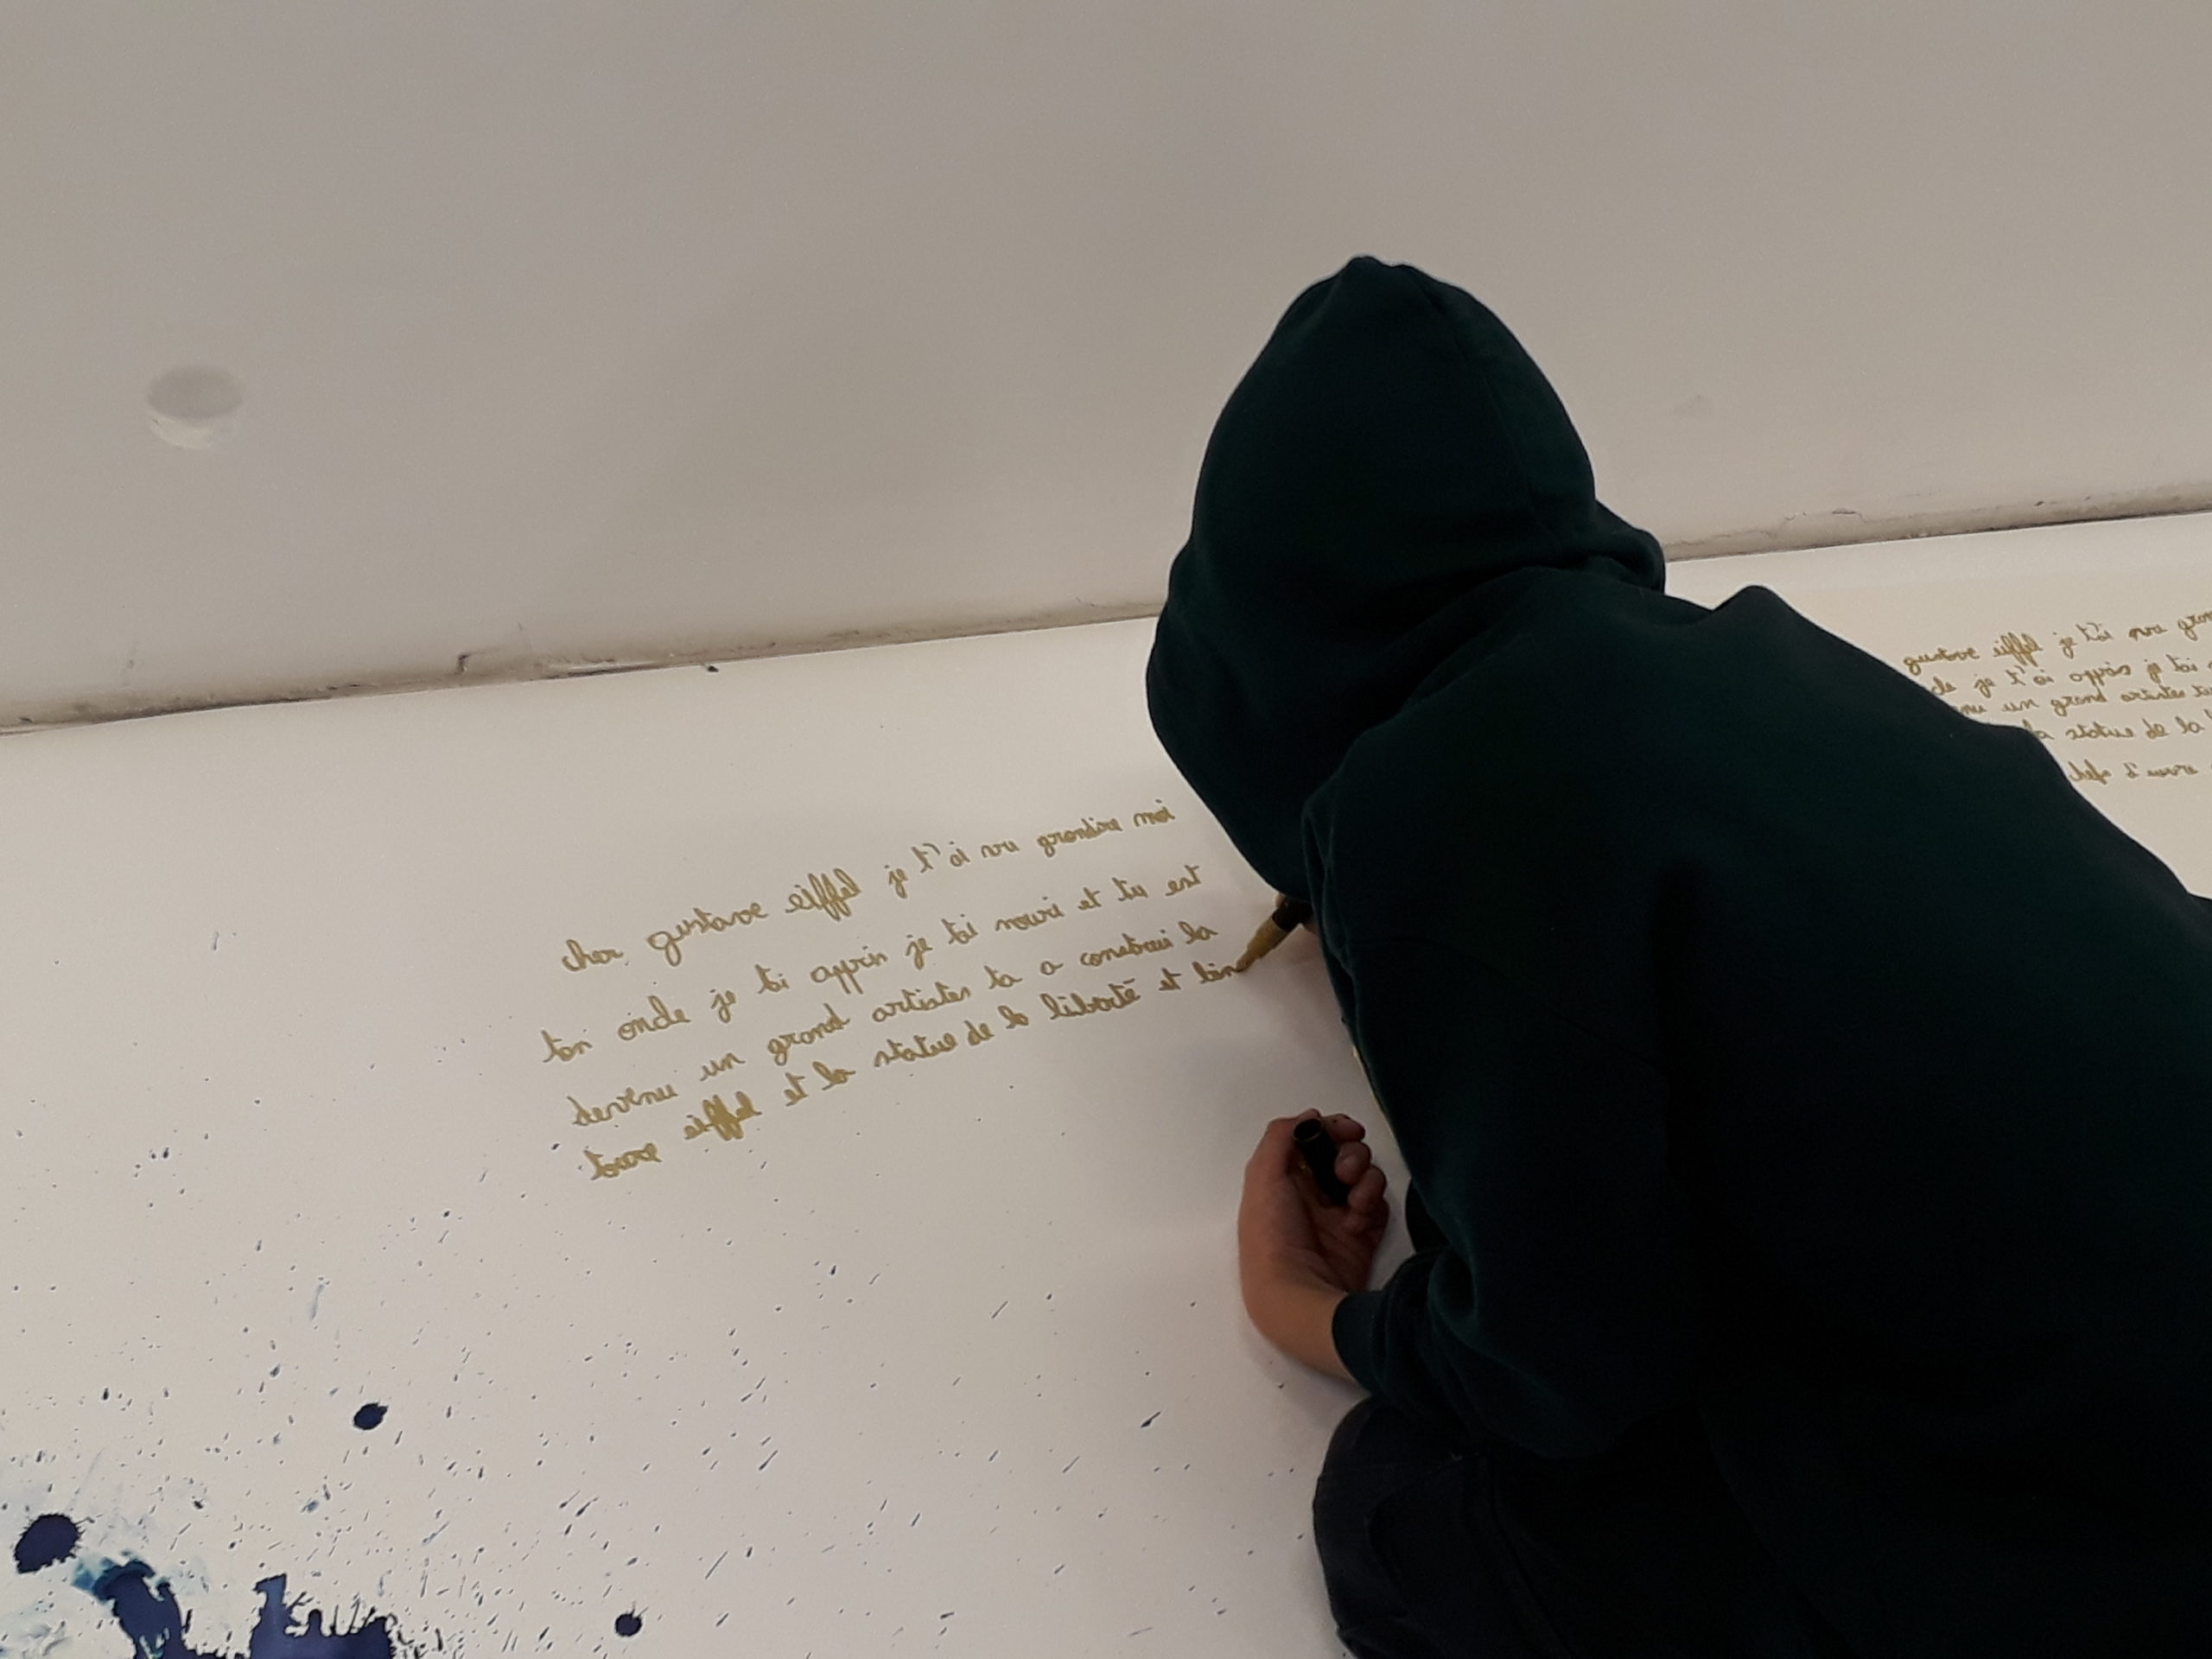 cher gustave eiffel je t'ai vu grandire moi
ton oncle je tai apprin je tai nouri et tu est
devenu un grand artistes ta a construi la
toure eiffel et la statue de la liberté et bien
gustave eiffel je t'ai vu gran
cle je t'ai appris je tai
enu un grand artistes
la statue de la
chefs d'euvre